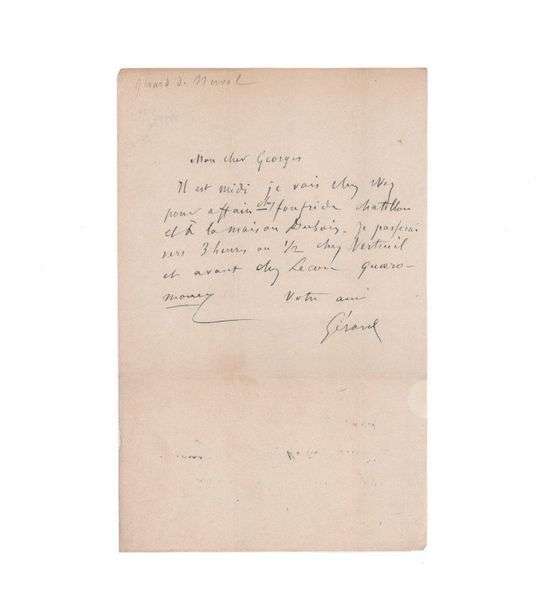 Gérard de Nerval
Mon cher Georges
Il est midi je vais chez Wey
pour affaire chez fonfrède chatillon
et à la maison Dubois. Je passerai
vers 3 heures ou 1/2 chez Verteuil
et avant chez Lecou quæro-
money
Votre ami
Gérard